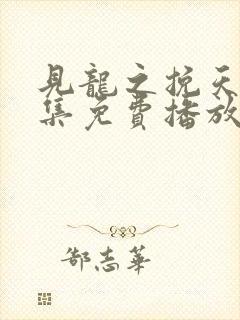 見龍之挽天
集免費播放
郜志華